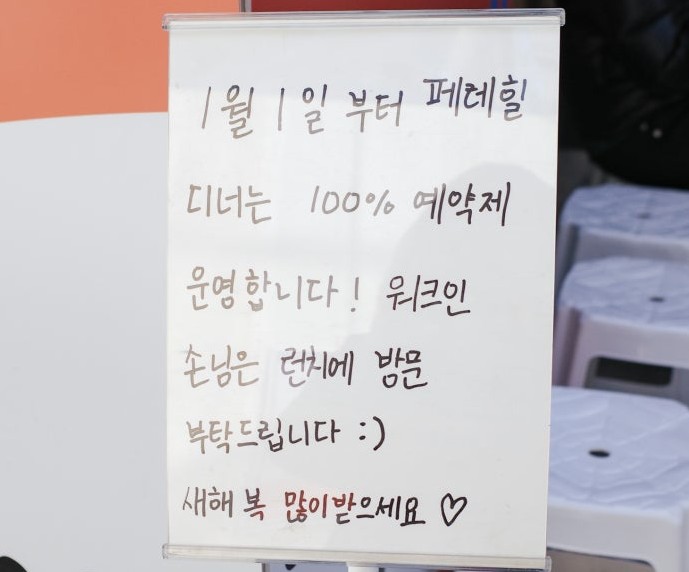 1월 1일 부터 페레힐
디너는 100% 예약제
운영합니다! 워크인
손님은 런치에 방문
부탁드립니다 :)
새해 복 많이받으세요 ♡